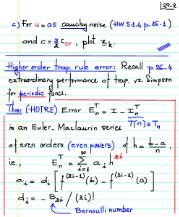 189-2
c) For u = 0.5 cauchy noise (HW 5.1.4 p.85-1)
and c = 2/3 c_cr, plot z_k.
Higher order trap. rule error: Recall p.26-4
extraordinary performance of trap. vs. Simpson
for periodic funcs.
Thm: (HOTRE) Error E_n^T = I - I_n^T
T(n) = T_n
is an Euler. Maclaurin series
of even orders (even powers) of h = b-a/n
i.e., E_n^T = ∑_{i=1}^∞ a_i h^{2i}
a_i = d_i [f^{(2i-1)}(b) - f^{(2i-1)}(a)]
d_i = - B_{2i} / (2i)!
Bernoulli number